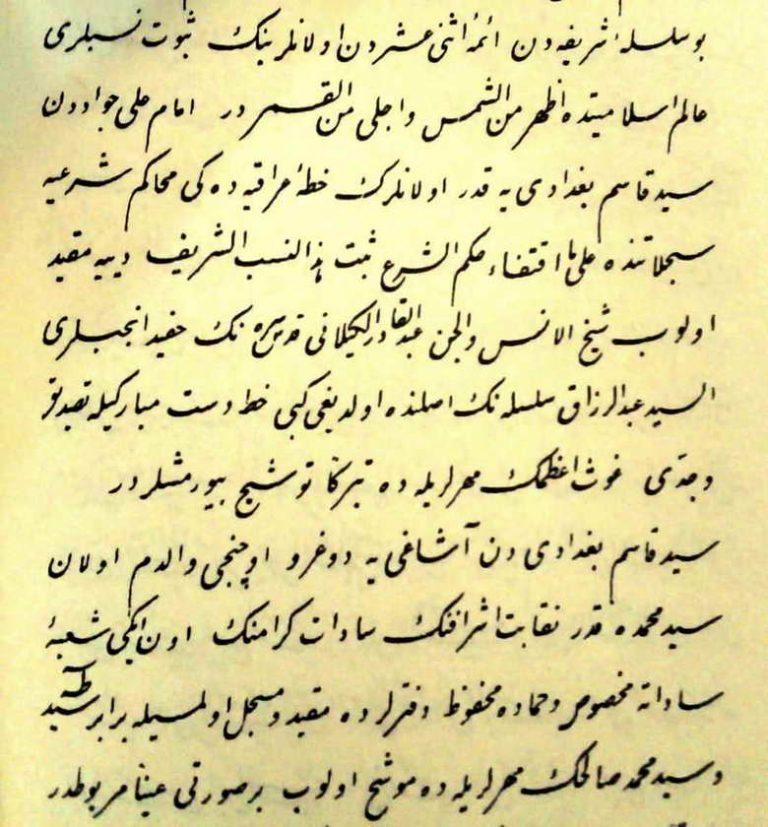 بو سلسلهٔ شریفه دن ائمهٔ اثنی عشردن اولانلرینك ثبوت نسبلری
عالم اسلامیتده اظهر من الشمس واجلی من القمر در امام علی جواددن
سید قاسم بغدادی یه قدر اولانلرك خطهٔ عراقیه ده کی محاکم شرعیه
سجلاتنده علی ما اقتضاء حکم الشرع ثبت هذا النسب الشریف دییه مقید
اولوب شیخ الانس والجن عبدالقادر الکیلانی قدس سره نك حفید انجبلری
السید عبدالرزاق سلسله نك اصلنده اولدیغی کبی خط دست مبارکیله تصدیق
وجدی غوث اعظمك مهرلریله ده تبرکا توشیح بیورمشلردر
سید قاسم بغدادی دن آشاغی یه دوغرو اوچنجی والدم اولان
سید محمده قدر نقابت اشرافنك سادات کرامنك اون ایکی شعبهٔ
ساداته مخصوص وحماده محفوظ دفترلرده مقید ومسجل اولمسیله برابر سید طه
وسید محمد صالحك مهرلریله ده موشح اولوب بر صورتی عینا مربوطدر